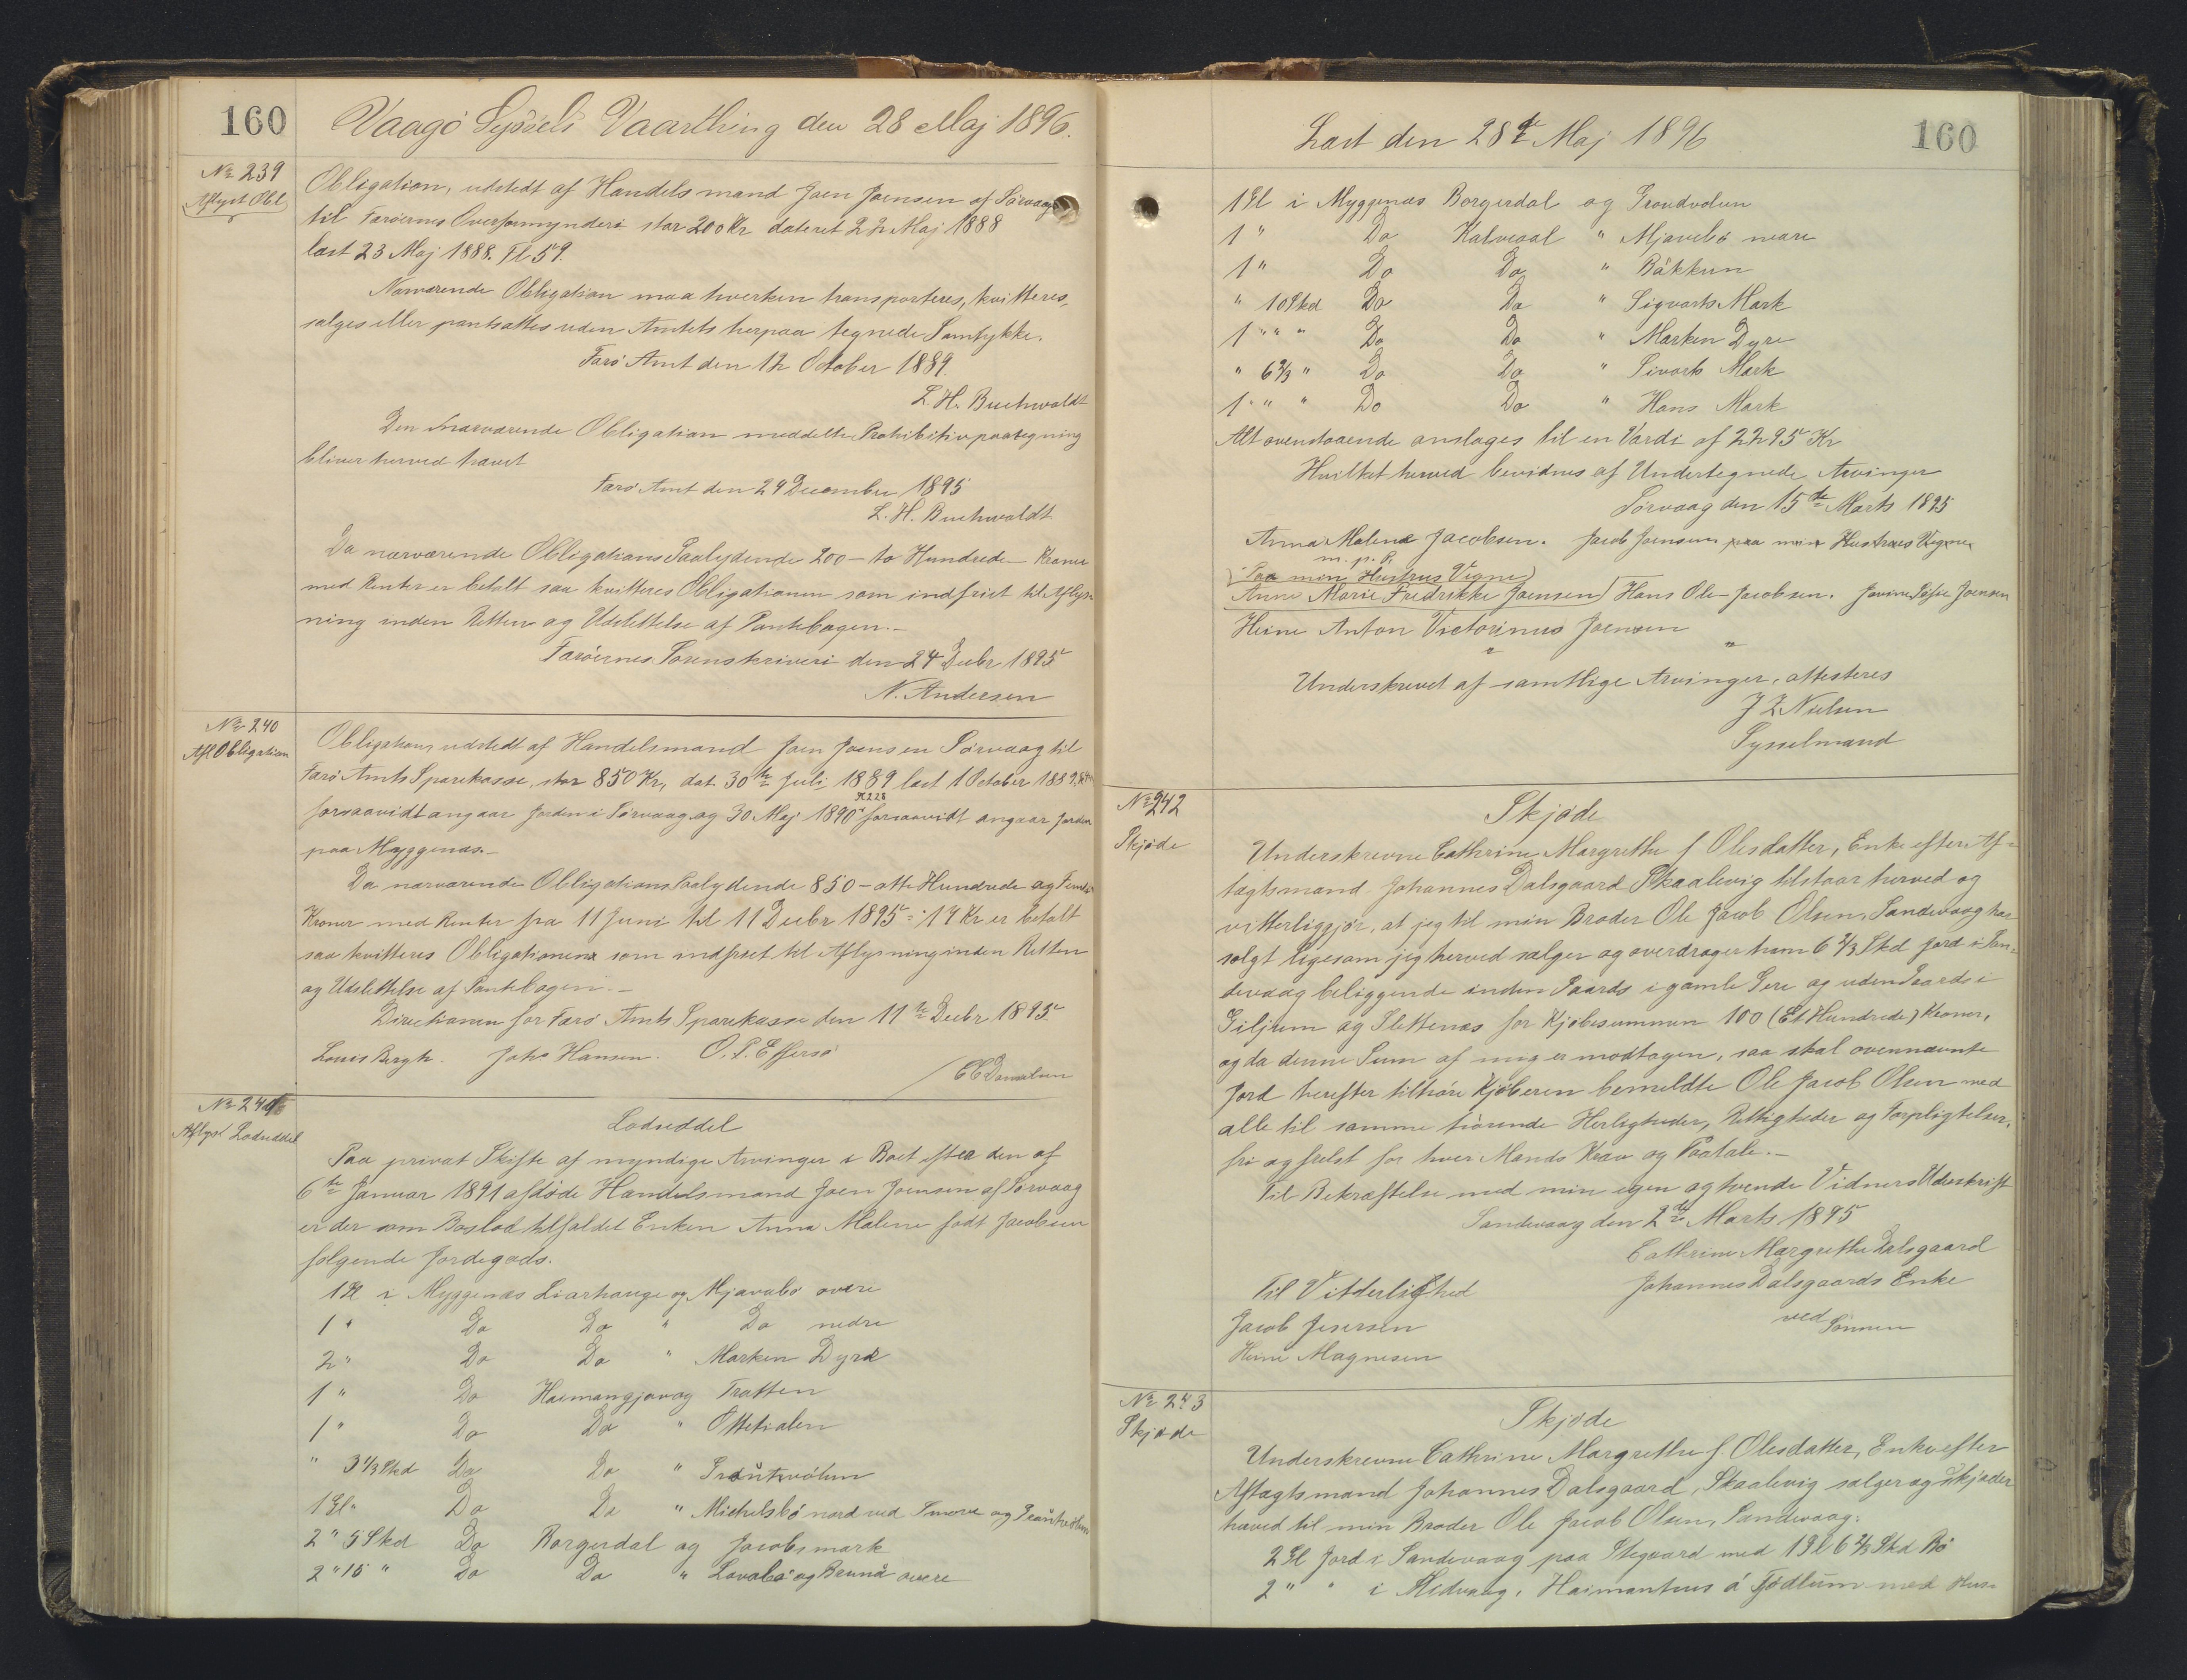 160
Vaagö Syssels Vaarthing den 28 Maj 1896.
No 239
Aflyst Obl.
Obligation, udstedt af Handelsmand Joen Joensen af Sörvaag
til Færöernes Overformynderi stor 200 Kr dateret 22 Maj 1888
læst 23 Maj 1888. Fl 59.
Nærværende Obligation maa hverken transporteres, kvitteres,
sælges eller pantsættes uden Amtets herpaa tegnede Samtykke.
Færö Amt den 12 October 1889.
L. H. Buchwaldt
Den nærværende Obligation meddelte Prohibitivpaategning
bliver herved hævet
Færö Amt den 29 December 1895
L. H. Buchwaldt.
Da nærværende Obligations Paalydende 200 - to Hundrede - Kroner
med Renter er betalt saa kvitteres Obligationen som indfriet til Aflys-
ning inden Retten og Udslettelse af Pantebogen. -
Færöernes Sorenskriveri den 24 Decbr 1895
N. Andersen
No 240
Afl Obligation
Obligation, udstedt af Handelsmand Joen Joensen Sörvaag til
Færö Amts Sparekasse, stor 850 Kr, dat. 30te Juli 1889 læst 1 October 1889,
Fl 228
forsaavidt angaar Jorden i Sörvaag og 30 Maj 1890 forsaavidt angaar Jorden
paa Myggenæs. -
Da nærværende Obligations Paalydende 850 - otte Hundrede og Femti
Kroner med Renter fra 11 Juni til 11 Decbr 1895 = 17 Kr er betalt
saa kvitteres Obligationen som indfriet til Aflysning inden Retten
og Udslettelse af Pantebogen. -
Directionen for Færö Amts Sparekasse den 11te Decbr 1895
Louis Bergh. Johs Hansen. O. P. Effersö
/ C C Danielsen
No 241
Aflyst Lodseddel
Lodseddel
Paa privat Skifte af myndige Arvinger i Boet efter den af
6te Januar 1891 afdöde Handelsmand Joen Joensen af Sörvaag
er der som Boslod tilfaldet Enken Anna Malene födt Jacobsen
fölgende Jordegods.
1 Gl i Myggenæs Liarhauge og Mjavabö övere
1 " Do Do " Do nedre
2 " Do Do " Marken Dyra
1 " Do Heimangjavog Tratten
1 " Do Do " Ottetialen
" 3 1/3 Skd Do Do " Trautvölun
1 Gl " Do Do " Michelsbö nord ved Smore og Trautvölun
2 " 5 Skd Do Borgerdal og Jacobsmark
2 " 15 " Do Do " Lovabö og Brunä övere
Læst den 28de Maj 1896
160
1 Gl i Myggenæs Borgerdal og Groudvolun
1 " Do Kalvedal " Mjavebö neare
1 " Do Do " Bäkkun
" 10 Skd Do Do " Sigvarts Mark
1 " " " Do Do " Marken Dyre
" 6 2/3 " Do Do " Sivarts Mark
1 " " " Do Do " Hans Mark
Alt ovenstaaende anslages til en Værdi af 2295 Kr
Hvilket herved bevidnes af Undertegnede Arvinger
Sörvaag den 15de Marts 1895
Anna Malene Jacobsen. Jacob Joensen paa min Hustrues Vegne
m. p. P.
(Paa min Hustrus Vegne)
Anne Marie Fredrikke Joensen) Hans Ole Jacobsen. Javine Sofie Joensen
Heine Anton Victorinus Joensen
Underskrevet af samtlige Arvinger, attesteres
J Z Nielsen
Sysselmand
No 242
Skjöde
Skjöde
Underskrevne Cathrine Margrethe f Olesdatter, Enke efter Af-
tægtsmand Johannes Dalsgaard Skaalevig tilstaar herved og
vitterliggjör, at jeg til min Broder Ole Jacob Olsen, Sandevaag har
solgt ligesom jeg herved sælger og overdrager ham 6 2/3 Skd Jord i San-
devaag beliggende inden Gaards i gamle Gere og uden Gaards i
Giljum og Slettenæs for Kjöbesummen 100 (Et Hundrede) Kroner,
og da denne Sum af mig er modtagen, saa skal ovennævnte
Jord herefter tilhöre Kjöberen bemeldte Ole Jacob Olsen med
alle til samme hörende Herligheder, Rettigheder og Forpligtelser,
fri og frelst for hver Mands Krav og Paatale. -
Til Bekræftelse med min egen og tvende Vidners Underskrift
Sandevaag den 2de Marts 1895
Cathrine Margrethe Dalsgaard
Til Vitterlighed Johannes Dalsgaards Enke
Jacob Jesersen ved Sönnen
Heine Magnesen
No 243
Skjöde
Skjöde
Underskrevne Cathrine Margrethe f. Olesdatter, Enke efter
Aftægtsmand Johannes Dalsgaard, Skaalevig sælger og skjöder
herved til min Broder Ole Jacob Olsen, Sandevaag:
2 Gl Jord i Sandevaag paa Stegaard med 1 Gl 6 2/3 Skd Bö
2 " " i Midvaag, Haimanhus á Fjödlum med Hus-